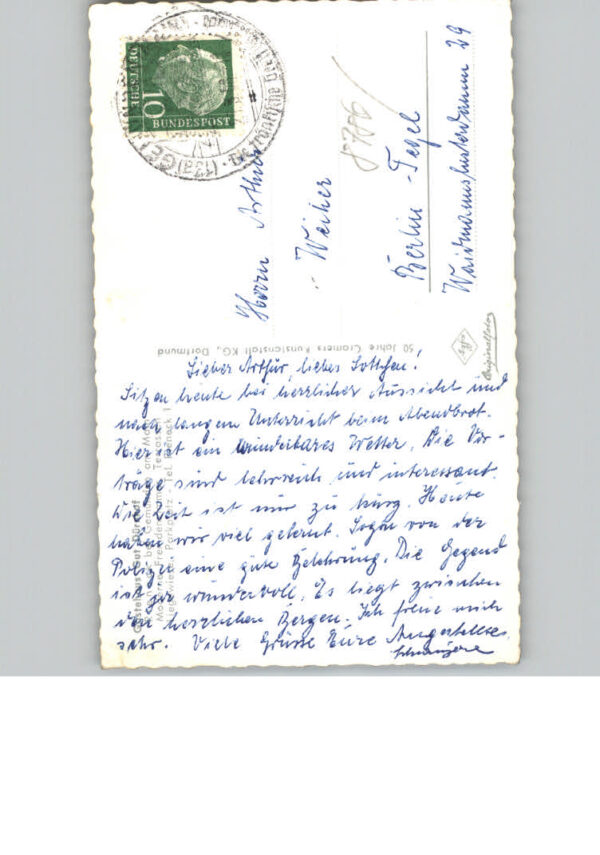 DEUTSCHE
10
BUNDESPOST
(13a) GE
8706
Herrn Arthur
Weiher
Berlin-Tegel
Waidmannslusterdamm 29
50 Jahre Cramers Kunstanstalt KG., Dortmund
Agfa
Originalfoto
Lieber Arthur, liebes Lottchen!
Sitzen heute bei herrlicher Aussicht und
nach langem Unterricht beim Abendbrot.
Hier ist ein wunderbares Wetter. Die Vor-
träge sind lehrreich und interessant.
Die Zeit ist nur zu kurz. Heute
haben wir viel gelernt. Sogar von der
Polizei eine gute Belehrung. Die Gegend
ist ja wundervoll. Es liegt zwischen
den herrlichen Bergen. Ich freue mich
sehr. Viele Grüsse Eure
Gästehaus Gut Dürnhof
bei Gemünden am Main
Moderne Fremdenzimmer, Terrassen
Liegewiesen, Parkplatz, Tel. Rieneck 1